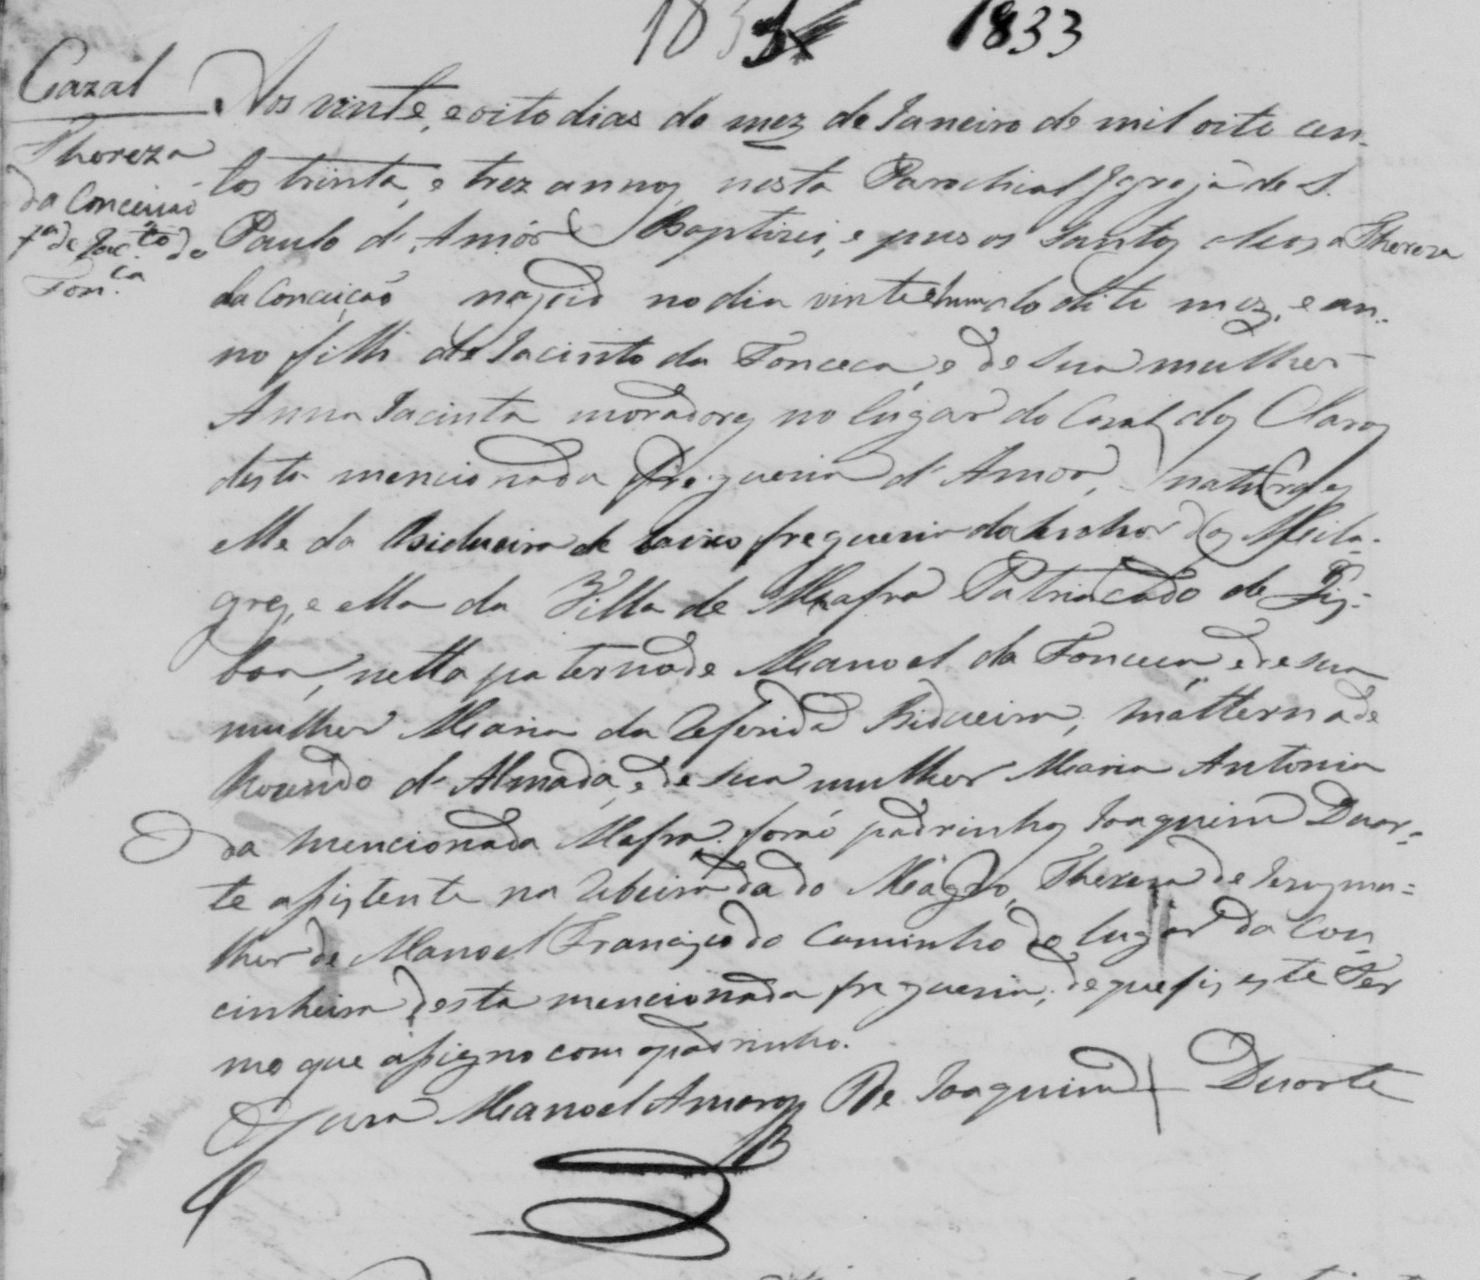 1833
Cazal
Thereza
da Conceicaõ
fª de Jac.to da
Fon.ca
Aos vinte, e oito dias do mez de Janeiro de mil oito cen-
tos trinta, e trez annos, nesta Parochial Igreja de S.
Paulo d'Amôr Baptizei, e pus os santos oleos a Thereza
da Conceição nascid no dia vinte e hum do dito mez, e an-
no filh de Jacinto da Fonceca, e de sua mulher
Anna Jacinta moradores no lugar do Cazal dos Claros
desta mencionada freguesia d'Amor, naturaes
elle da Bidueira de baixo freguesia do Senhor dos Mila-
gres, e ella da Villa de Mafra Patriarcado de Lis-
boa, netta paterna de Manoel da Fonceca e de sua
mulher Maria da referida Bidueira, matterna de
Rozendo d'Almada, e de sua mulher Maria Antonia
da mencionada Mafra. foraõ padrinhos Joaquim Duar-
te assistente na Ribeira do Thereza de Jezus mu-
lher de Manoel Francisco do Caminho do lugar da Con-
cinheira desta mencionada freguesia, de que fis este Ter
mo que assigno com o padrinho.
O Cura Manoel De Joaquim + Duarte